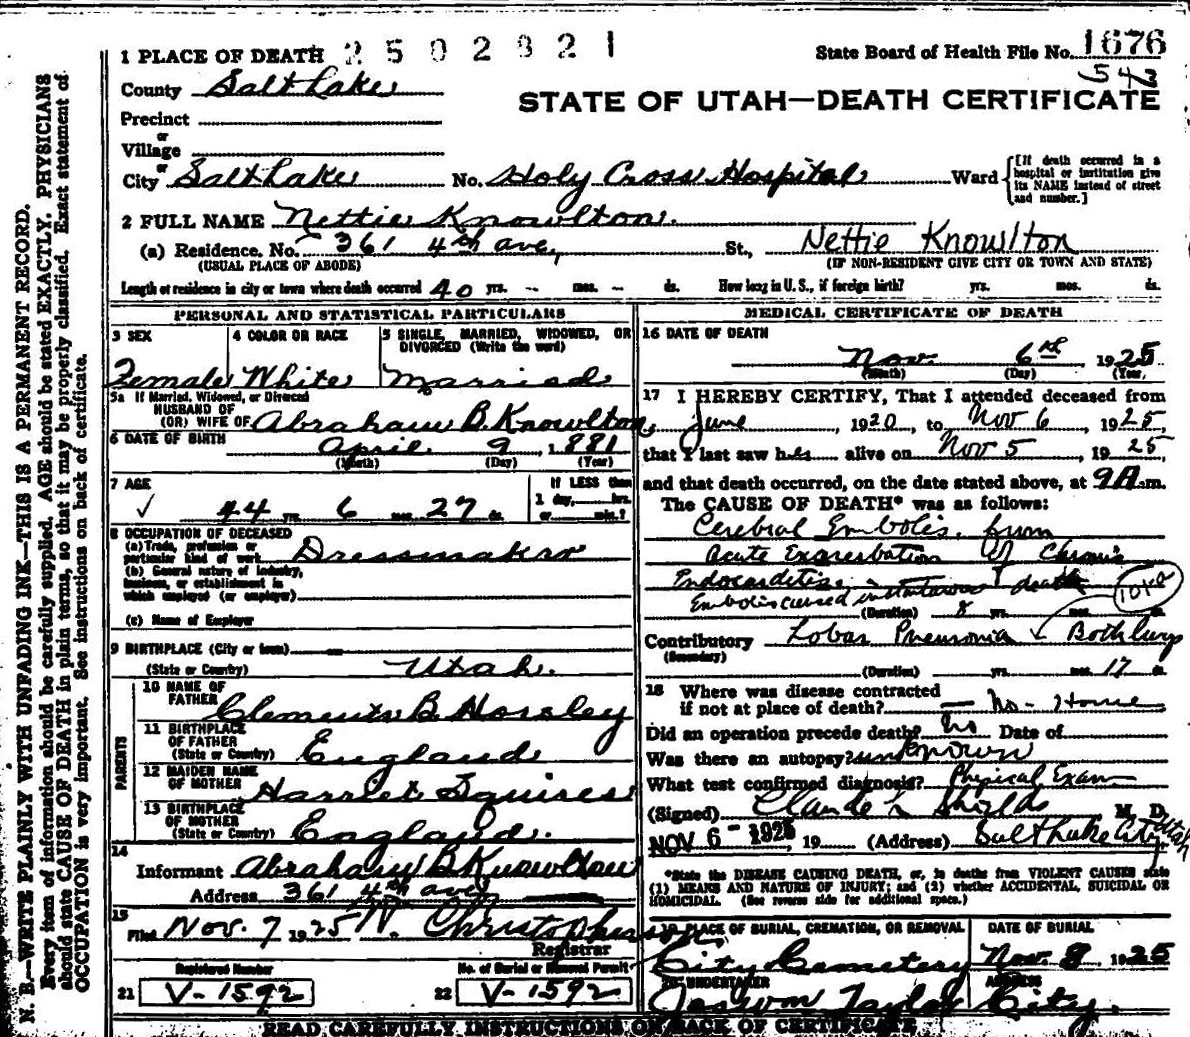 1 PLACE OF DEATH 2502821 State Board of Health File No. 1676
County Salt Lake 543
STATE OF UTAH—DEATH CERTIFICATE
Precinct
or
Village
or
City Salt Lake No. Holy Cross Hospital Ward [If death occurred in a hospital or institution give its NAME instead of street and number.]
2 FULL NAME Nettie Knowlton.
(a) Residence. No. 361 4th ave, St., Nettie Knowlton
(USUAL PLACE OF ABODE) (IF NON-RESIDENT GIVE CITY OR TOWN AND STATE)
Length of residence in city or town where death occurred 40 yrs. -- mos. -- ds. How long in U. S., if foreign birth? yrs. mos. ds.
PERSONAL AND STATISTICAL PARTICULARS
3 SEX 4 COLOR OR RACE 5 SINGLE, MARRIED, WIDOWED, OR DIVORCED (Write the word)
Female White Married
5a If Married, Widowed, or Divorced
HUSBAND OF
(OR) WIFE OF Abraham B. Knowlton.
6 DATE OF BIRTH April 9 1881
(Month) (Day) (Year)
7 AGE If LESS than
1 day, hrs.
✓ 44 yrs. 6 mos. 27 ds. or min.?
8 OCCUPATION OF DECEASED
(a) Trade, profession or
particular kind of work Dressmaker
(b) General nature of industry,
business, or establishment in
which employed (or employer)
(c) Name of Employer
9 BIRTHPLACE (City or town)
(State or Country) Utah.
PARENTS
10 NAME OF
FATHER Clements B. Horsley
11 BIRTHPLACE
OF FATHER
(State or Country) England
12 MAIDEN NAME
OF MOTHER Harriet Squires
13 BIRTHPLACE
OF MOTHER
(State or Country) England.
14
Informant Abraham B Knowlton
Address 361 4th ave
15
Filed Nov. 7 1925 N. Christopherson.
Registrar
Registered Number No. of Burial or Removal Permit
21 V-1592 22 V-1592
MEDICAL CERTIFICATE OF DEATH
16 DATE OF DEATH
Nov. 6th 1925
(Month) (Day) (Year)
17 I HEREBY CERTIFY, That I attended deceased from
June, 1920, to Nov 6, 1925,
that I last saw her alive on Nov 5, 1925,
and that death occurred, on the date stated above, at 9A.m.
The CAUSE OF DEATH* was as follows:
Cerebral Emboles. from
Acute Exaserbation of Chronic
Endocarditis.
Embolis caused instantaneous death
(Duration) 8 yrs. mos. ds.
Contributory Lobar Pneumonia ✓ Both lungs
(Secondary)
(Duration) yrs. mos. 17 ds.
18 Where was disease contracted
if not at place of death? — no - Home
Did an operation precede death? no Date of
Was there an autopsy? unknown
What test confirmed diagnosis? Physical Exam
(Signed) Claude L Shields M. D.
NOV 6 - 1925, 19 (Address) Salt Lake City Utah
*State the DISEASE CAUSING DEATH, or, in deaths from VIOLENT CAUSES state
(1) MEANS AND NATURE OF INJURY; and (2) whether ACCIDENTAL, SUICIDAL OR
HOMICIDAL. (See reverse side for additional space.)
19 PLACE OF BURIAL, CREMATION, OR REMOVAL DATE OF BURIAL
City Cemetery Nov. 8 1925
20 UNDERTAKER ADDRESS
Jos Wm Taylor City.
READ CAREFULLY INSTRUCTIONS ON BACK OF CERTIFICATE
N. B.—WRITE PLAINLY WITH UNFADING INK—THIS IS A PERMANENT RECORD.
Every item of information should be carefully supplied. AGE should be stated EXACTLY. PHYSICIANS
should state CAUSE OF DEATH in plain terms, so that it may be properly classified. Exact statement of
OCCUPATION is very important. See instructions on back of certificate.